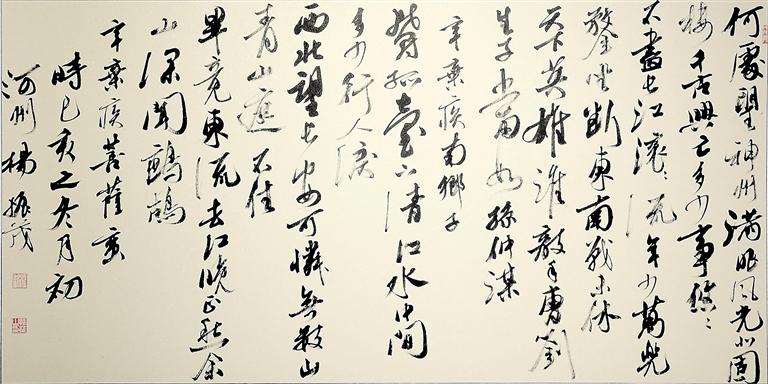 何處望神州滿眼風光北固
樓千古興亡多少事悠々
不盡長江滾々流年少萬兜
鍪坐斷東南戰未休
天下英雄誰敵手曹劉
生子當如孫仲謀
辛棄疾南鄉子
鬱孤臺下清江水中間
多少行人淚
西北望長安可憐無數山
青山遮不住
畢竟東流去江晚正愁余
山深聞鷓鴣
辛棄疾菩薩蠻
時己亥之冬月初
河州楊振茂